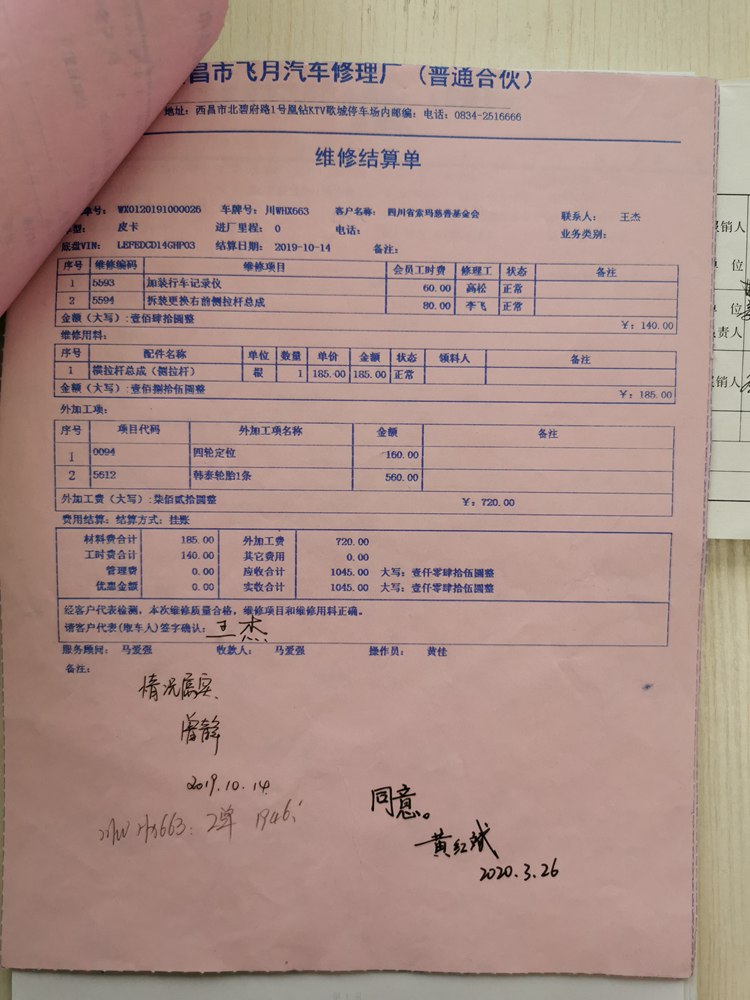 昌市飞月汽车修理厂（普通合伙）
地址：西昌市北碧府路1号凰钻KTV歌城停车场内邮编：电话：0834-2516666
维修结算单
单号：WX0120191000026 车牌号：川WHX663 客户名称：四川省索玛慈善基金会 联系人：王杰
型：皮卡 进厂里程：0 电话： 业务类别：
底盘VIN：LEFEDCD14GHP03 结算日期：2019-10-14 备注：
序号 维修编码 维修项目 会员工时费 修理工 状态 备注
1 5593 加装行车记录仪 60.00 高松 正常
2 5594 拆装更换右前侧拉杆总成 80.00 李飞 正常
金额（大写）:壹佰肆拾圆整 ￥：140.00
维修用料：
序号 配件名称 单位 数量 单价 金额 状态 领料人 备注
1 横拉杆总成（侧拉杆） 根 1 185.00 185.00 正常
金额（大写）:壹佰捌拾伍圆整 ￥：185.00
外加工项：
序号 项目代码 外加工项名称 金额 备注
1 0094 四轮定位 160.00
2 5612 韩泰轮胎1条 560.00
外加工费（大写）:柒佰贰拾圆整 ￥：720.00
费用结算：结算方式：挂账
材料费合计 185.00 外加工费 720.00
工时费合计 140.00 其它费用 0.00
管理费 0.00 应收合计 1045.00 大写：壹仟零肆拾伍圆整
优惠金额 0.00 实收合计 1045.00 大写：壹仟零肆拾伍圆整
经客户代表检测，本次维修质量合格，维修项目和维修用料正确。
请客户代表(取车人)签字确认：王杰
服务顾问：马爱强 收款人：马爱强 操作员：黄佳
备注：
情况属实
2019.10.14
663: 2单 1946
同意。
黄红斌
2020.3.26
销人
位
位
责人
销人